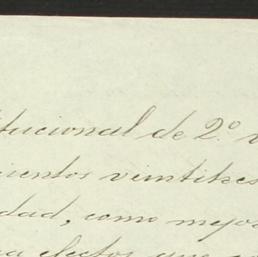 tucional de 2.º
cientos veintitres
dad, como mejo
ra efectos que